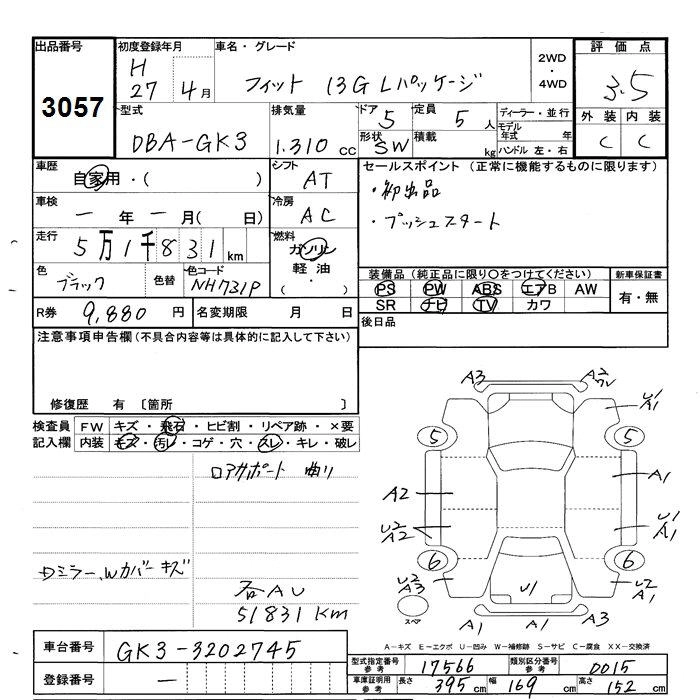 出品番号 初度登録年月 車名・グレード 2WD・4WD 評価点
3057 H 27年 4月 フィット 13G Lパッケージ 3.5
型式 排気量 ドア 5 定員 5人 ディーラー・並行 外装 内装
DBA-GK3 1.310 cc 形状 SW 積載 kg モデル年式 年 C C
ハンドル 左・右
車歴 シフト セールスポイント (正常に機能するものに限ります)
自家用・( ) AT ・初出品
車検 冷房 ・プッシュスタート
ー年ー月( 日) AC
走行 燃料
5万1千831km ガソリン
色 色替 色コード 軽油 装備品(純正品に限り○をつけてください) 新車保証書
ブラック NH731P ・( ) PS PW ABS エアB AW 有・無
SR ナビ TV カワ
R券 9,880円 名変期限 月 日 後日品
注意事項申告欄(不具合内容等は具体的に記入して下さい)
修復歴 有 〔箇所 〕
検査員 FW キズ・飛石・ヒビ割・リペア跡・×要
記入欄 内装 キズ・汚レ・コゲ・穴・スレ・キレ・破レ
ロアサポート 曲り
Dミラー、Wカバーキズ
51831 Km
A3
U1
A1
5 5
A2 A1
U2
A2
U1
A1
6 6
U2
A3
U1
U2
A1
スペア
A1 A1 A3
A-キズ E-エクボ U-凹み W-補修跡 S-サビ C-腐食 XX-交換済
車台番号 GK3-3202745 型式指定番号 参考 17566 類別区分番号 参考 0015
登録番号 ー 車庫証明用 参考 長さ 395cm 幅 169cm 高さ 152cm